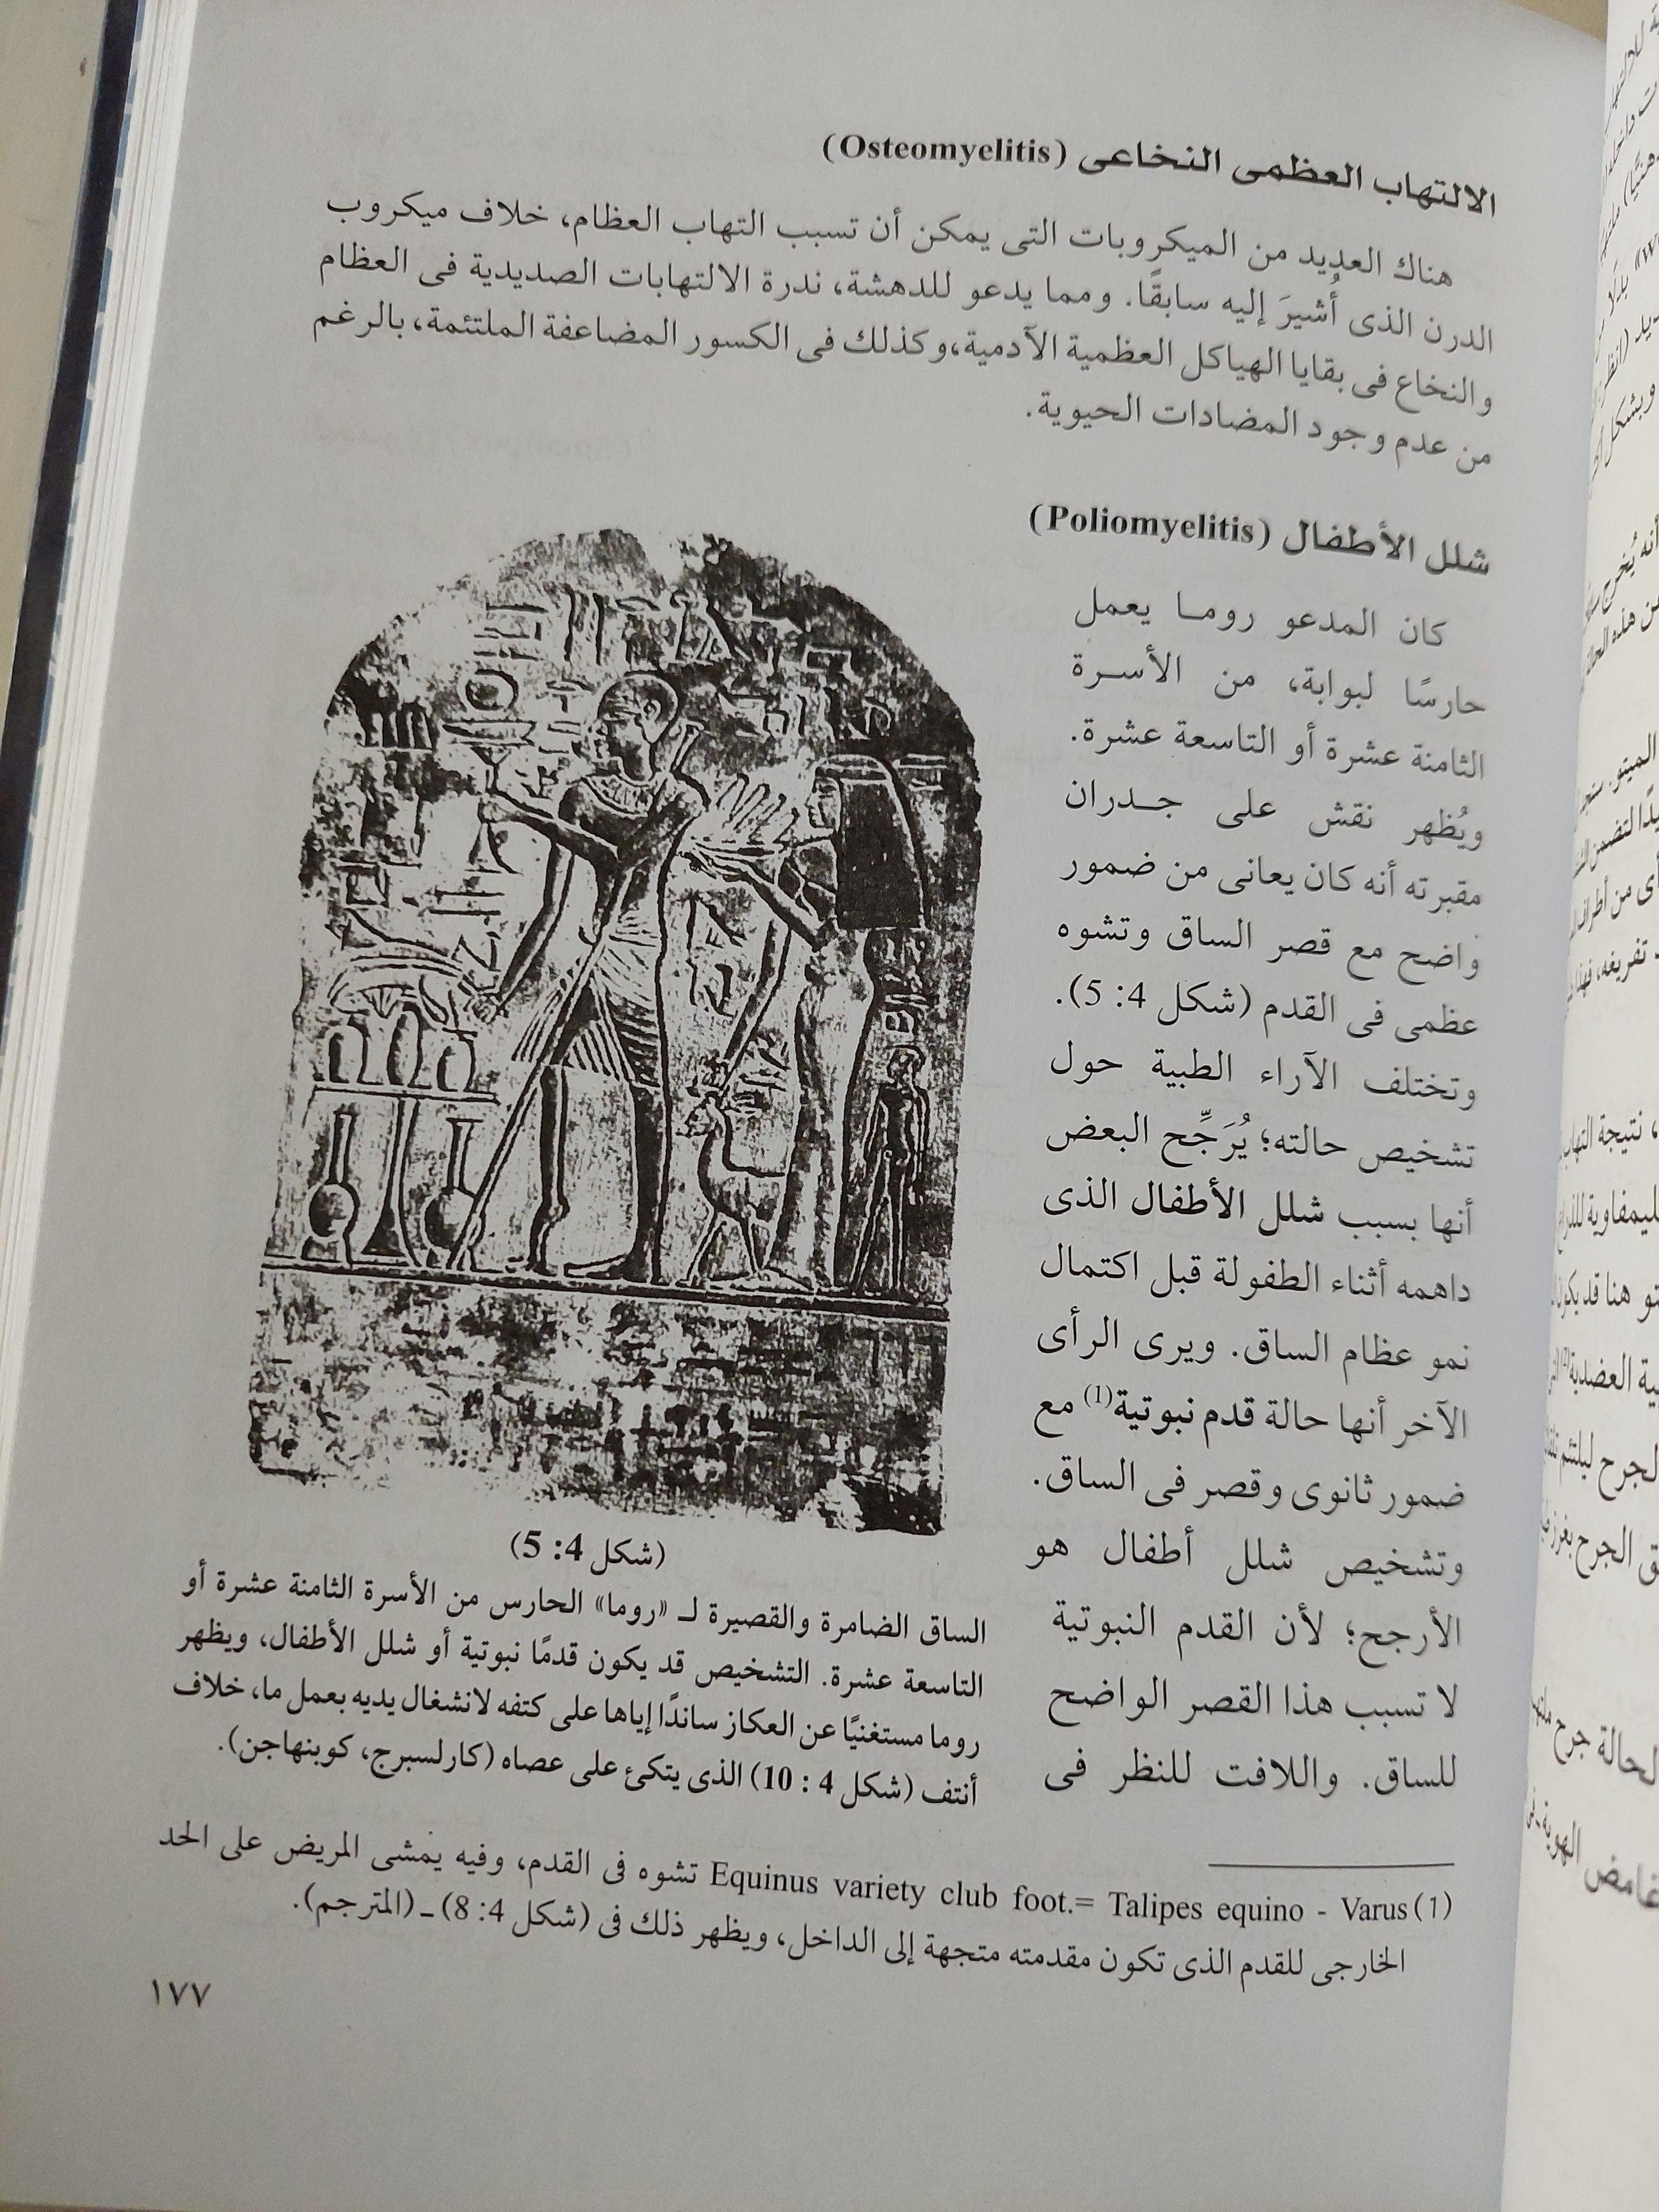 الالتهاب العظمى النخاعى (Osteomyelitis)
هناك العديد من الميكروبات التى يمكن أن تسبب التهاب العظام، خلاف ميكروب
الدرن الذى أُشيرَ إليه سابقًا. ومما يدعو للدهشة، ندرة الالتهابات الصديدية فى العظام
والنخاع فى بقايا الهياكل العظمية الآدمية،وكذلك فى الكسور المضاعفة الملتئمة، بالرغم
من عدم وجود المضادات الحيوية.
شلل الأطفال (Poliomyelitis)
كان المدعو روما يعمل
حارسًا لبوابة، من الأسرة
الثامنة عشرة أو التاسعة عشرة.
ويُظهر نقش على جدران
مقبرته أنه كان يعانى من ضمور
واضح مع قصر الساق وتشوه
عظمى فى القدم (شكل 4: 5).
وتختلف الآراء الطبية حول
تشخيص حالته؛ يُرَجِّح البعض
أنها بسبب شلل الأطفال الذى
داهمه أثناء الطفولة قبل اكتمال
نمو عظام الساق. ويرى الرأى
الآخر أنها حالة قدم نبوتية(1) مع
ضمور ثانوى وقصر فى الساق.
وتشخيص شلل أطفال هو
الأرجح؛ لأن القدم النبوتية
لا تسبب هذا القصر الواضح
للساق. واللافت للنظر فى
(شكل 4: 5)
الساق الضامرة والقصيرة لـ «روما» الحارس من الأسرة الثامنة عشرة أو
التاسعة عشرة. التشخيص قد يكون قدمًا نبوتية أو شلل الأطفال، ويظهر
روما مستغنيًا عن العكاز ساندًا إياها على كتفه لانشغال يديه بعمل ما، خلاف
أنتف (شكل 4 : 10) الذى يتكئ على عصاه (كارلسبرج، كوبنهاجن).
(1) Equinus variety club foot.= Talipes equino - Varus تشوه فى القدم، وفيه يمشى المريض على الحد
الخارجى للقدم الذى تكون مقدمته متجهة إلى الداخل، ويظهر ذلك فى (شكل 4: 8) ـ (المترجم).
١٧٧